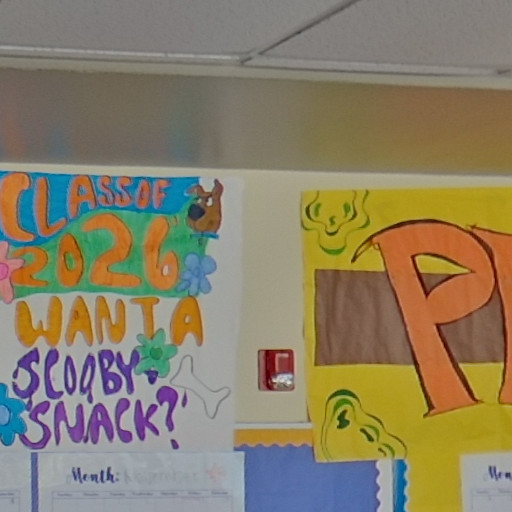 CLASS OF
2026
WANT A
SCOOBY
SNACK?
Month: